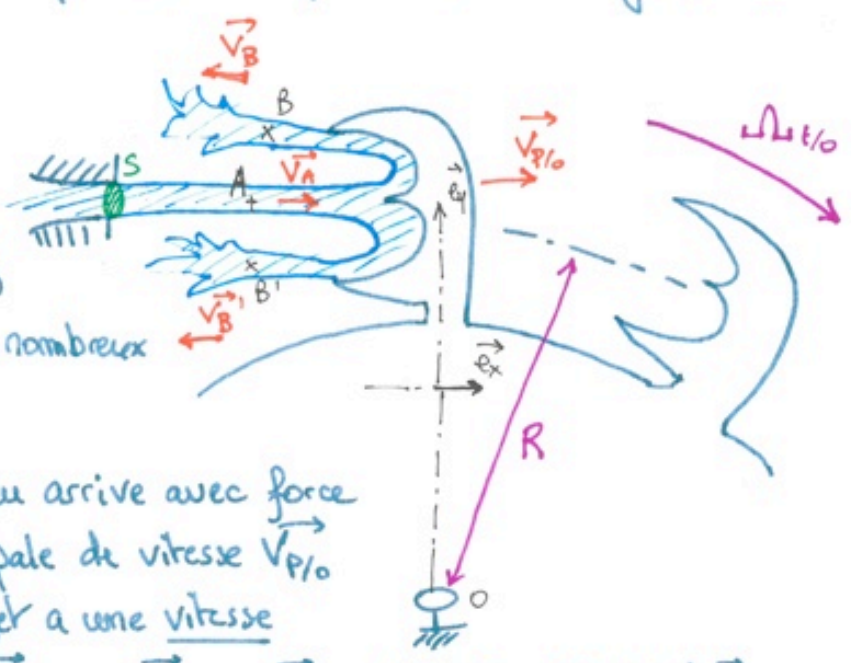 V_B
B
S
A
V_A
V_P/o
Ω t/o
e_y
B'
V_B'
nombreux
e_x
R
arrive avec force
pale de vitesse V_P/o
O
et a une vitesse